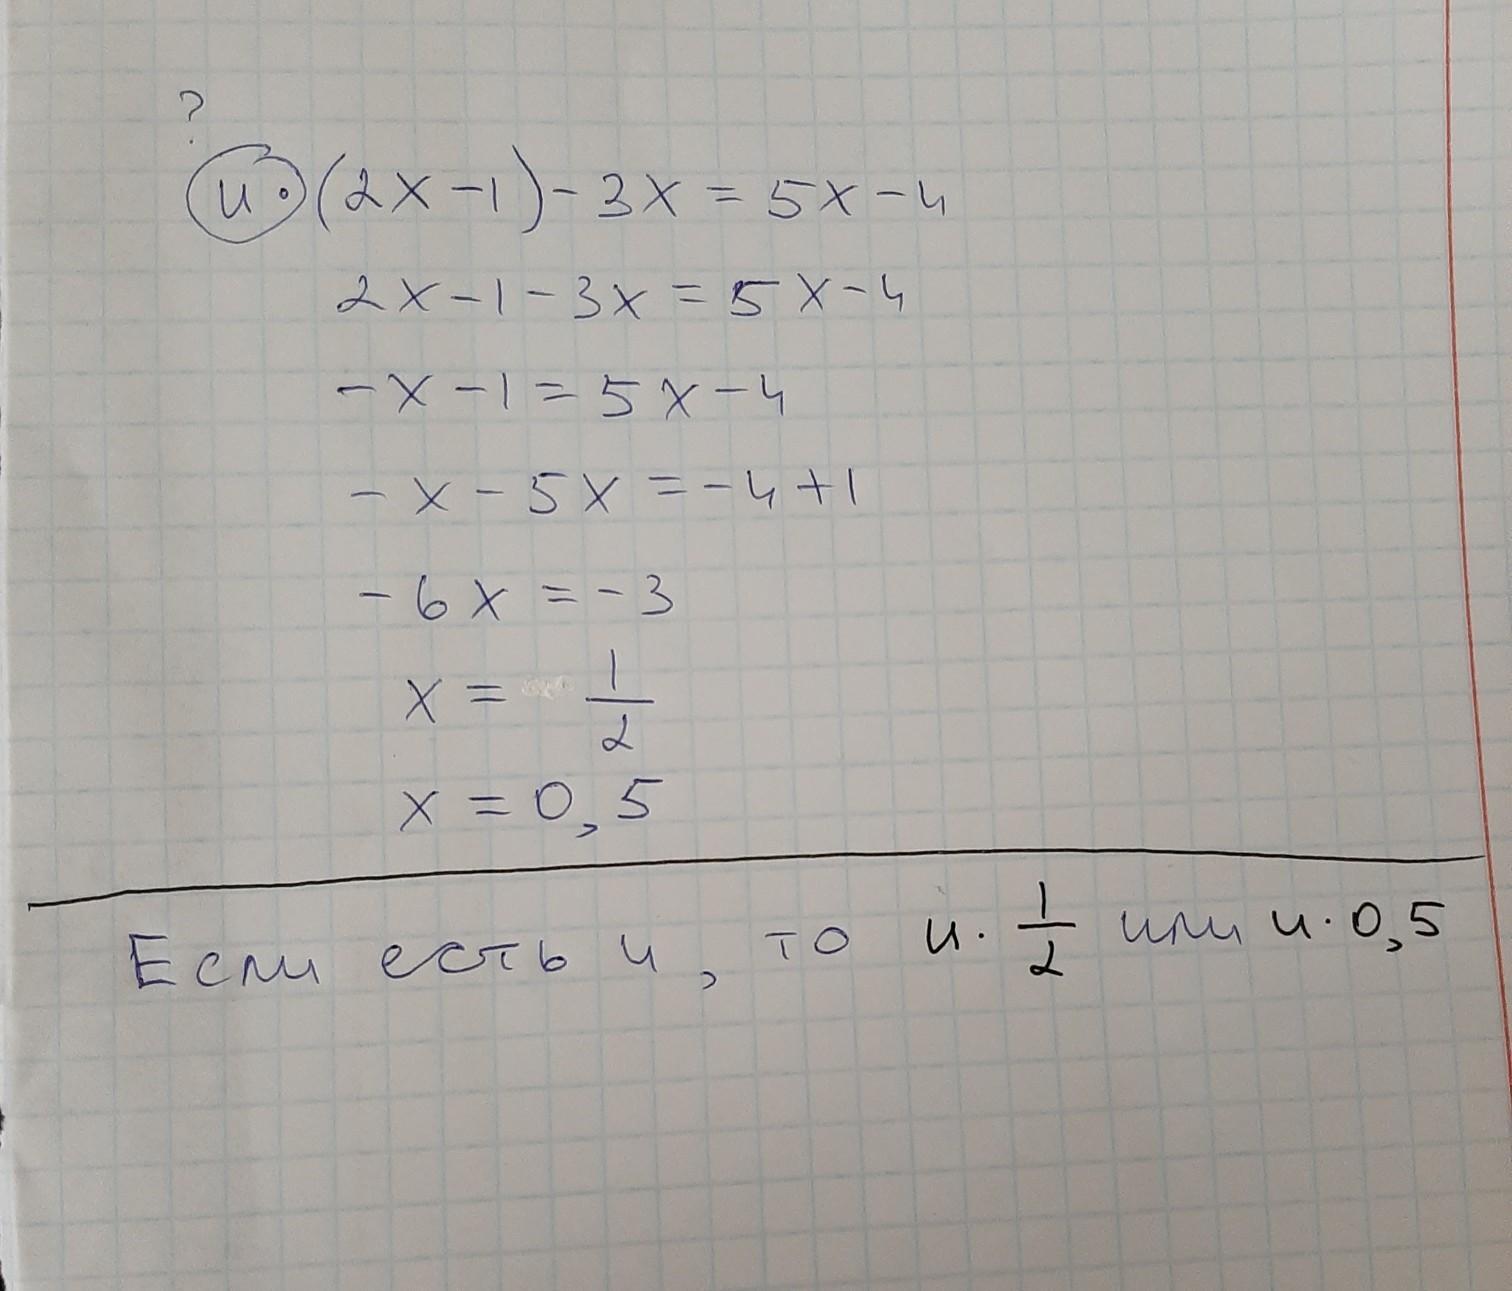 ?
и·(2x-1)-3x=5x-4
2x-1-3x=5x-4
-x-1=5x-4
-x-5x=-4+1
-6x=-3
x= 1/2
x=0,5
Если есть и, то и· 1/2 или и·0,5